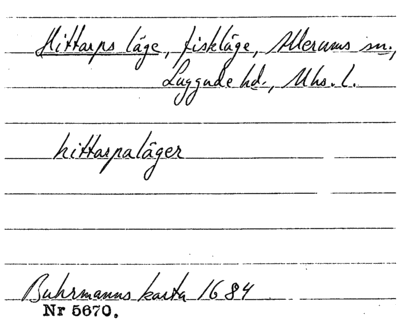 Hittarps läge, fiskläge, Allerums sn.,
Luggude hd., Mhs. l.
hittarpaläger
Buhrmanns karta 1684
Nr 5670.